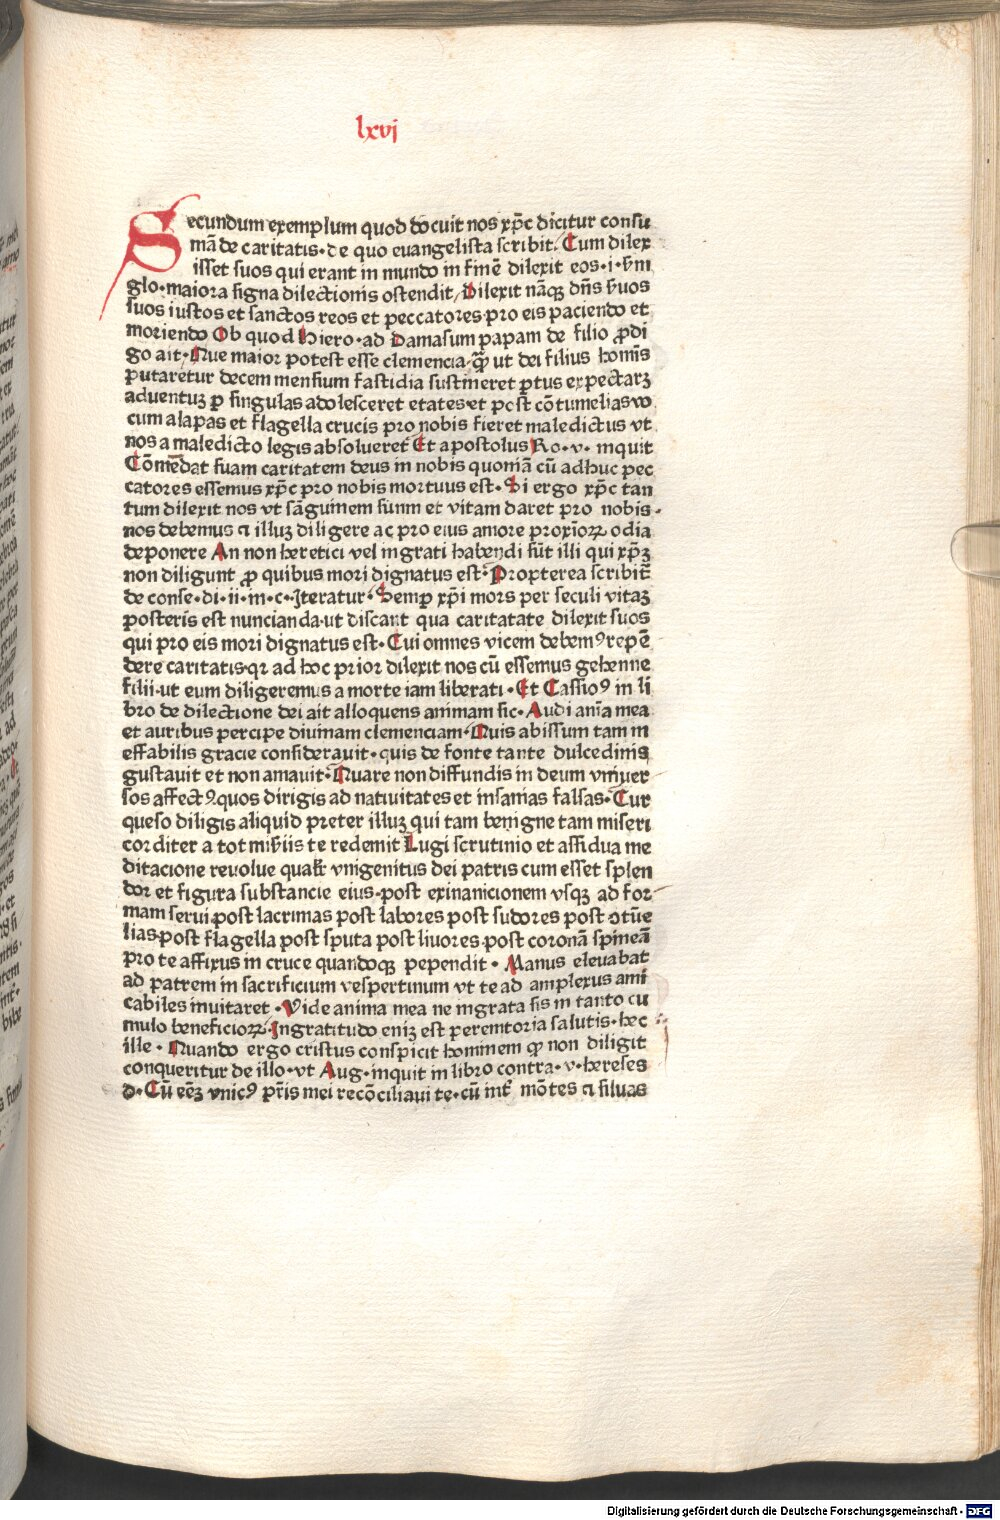 lxvj
Secundum exemplum quod docuit nos xp̄c dicitur consu
mā de caritatis·de quo euangelista scribit. Cum dilex
isset suos qui erant in mundo in finē dilexit eos·i·sm̄
glo·maiora signa dilectionis ostendit, Dilexit nāqꝫ dn̄s suos
suos iustos et sanctos reos et peccatores·pro eis paciendo et
moriendo Ob quod Hiero·ad Damasum papam de filio ꝓdi
go ait·Nue maior potest esse clemencia·qꝫ̄ ut dei filius hoīs
putaretur decem mensium fastidia sustineret ꝑtus expectarꝫ
aduentuꝫ ꝑ singulas adolesceret etates·et post cōtumelias·vo
cum alapas et flagella crucis pro nobis fieret maledictus vt
nos a maledicto legis absolueret Et apostolus Ro·v· inquit
Cōmēdat suam caritatem deus in nobis quoniā cū adhuc pec
catores essemus xp̄c pro nobis mortuus est· Si ergo xp̄c tan
tum dilexit nos vt sāguinem suum et vitam daret pro nobis·
nos debemus ⁊ illuꝫ diligere ac pro eius amore proxīoꝝ odia
deponere An non heretici vel ingrati habendi sūt illi qui xp̄ꝫ
non diligunt ꝓ quibus mori dignatus est·Propterea scribit̄
de conse·di·ii·m·c·Iteratur·Semꝑ xp̄i mors per seculi vitaꝫ
posteris est nuncianda·ut discant qua caritatate dilexit suos
qui pro eis mori dignatus est·Cui omnes vicem debemꝰ repē
dere caritatis·qr ad hoc prior dilexit nos cū essemus gehenne
filii·ut eum diligeremus a morte iam liberati·Et Cassioꝰ in li
bro de dilectione dei ait alloquens animam sic·Audi aīa mea
et auribus percipe diuinam clemenciam·Quis abissum tam in
effabilis gracie considerauit·quis de fonte tante dulcedinis
gustauit et non amauit·Quare non diffundis in deum vniuer
sos affectꝰ·quos dirigis ad natiuitates et insanias falsas·Cur
queso diligis aliquid preter illuꝫ qui tam benigne tam miseri
corditer a tot miserīis te redemit Lugi scrutinio et assidua me
ditacione reuolue qualr̄ vnigenitus dei patris cum esset splen
dor et figura substancie eius·post exinanicionem vsqꝫ ad for
mam serui·post lacrimas post labores post sudores post ꝯtūe
lias·post flagella post sputa post liuores·post coronā spineā
pro te affixus in cruce quandoqꝫ pependit· Manus eleuabat
ad patrem in sacrificium vespertinum vt te ad amplexus ami
cabiles inuitaret ·Vide anima mea ne ingrata sis in tanto cu
mulo beneficioꝝ·Ingratitudo eniꝫ est peremtoria salutis·hec
ille· Quando ergo cristus conspicit hominem ꝙ non diligit
conqueritur de illo·vt Aug·inquit in libro contra·v·hereses
d·Cū eēꝫ vnicꝰ pr̄is mei recōciliaui te·cū int̄ mōtes ⁊ siluas
Digitalisierung gefördert durch die Deutsche Forschungsgemeinschaft · DFG